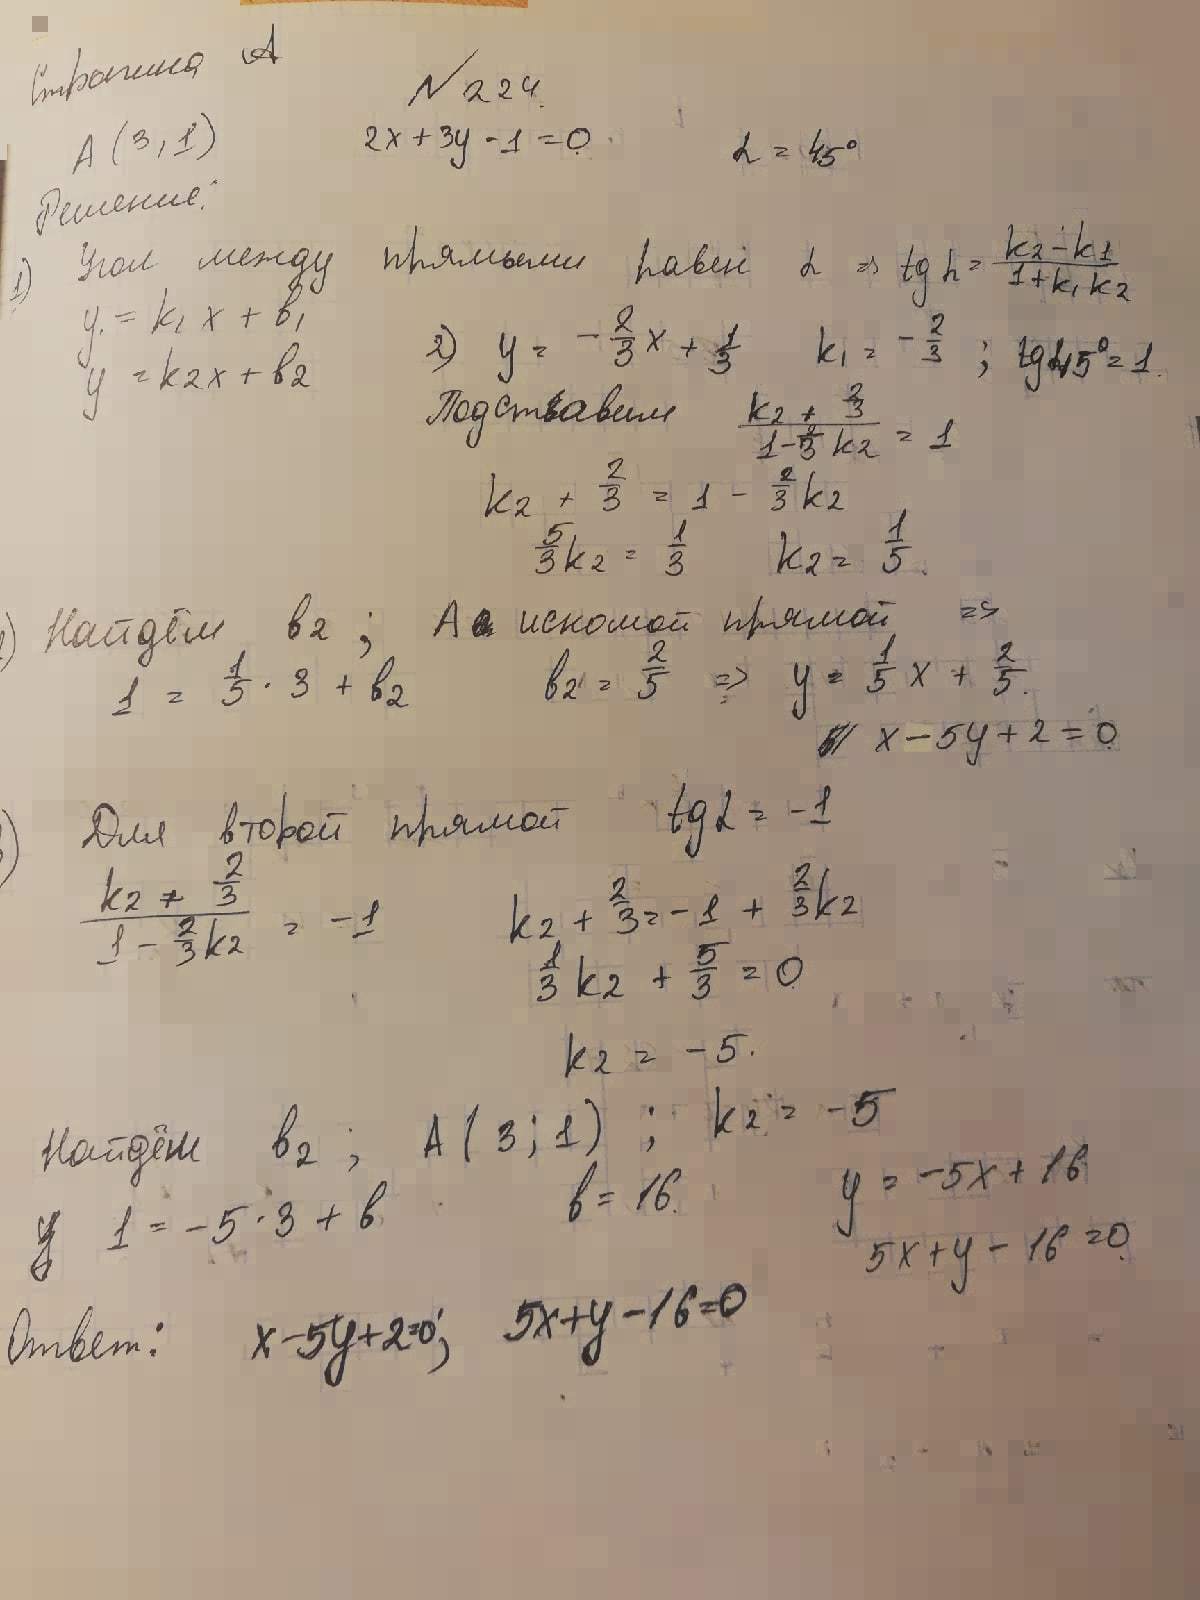 Страница А
№ 224.
A(3,1) 2x+3y-1=0. α = 45°
Решение:
1) Угол между прямыми равен α => tg α = (k2-k1)/(1+k1k2)
y = k1x + b1
y = k2x + b2
2) y = -2/3x + 1/3 k1 = -2/3 ; tg45° = 1.
Подставим (k2 + 2/3)/(1-2/3k2) = 1
k2 + 2/3 = 1 - 2/3k2
5/3k2 = 1/3 k2 = 1/5.
Найдём b2; A ∈ искомой прямой =>
1 = 1/5 · 3 + b2 b2 = 2/5 => y = 1/5x + 2/5.
x-5y+2=0
Для второй прямой tgα = -1
(k2 + 2/3)/(1 - 2/3k2) = -1 k2 + 2/3 = -1 + 2/3k2
1/3k2 + 5/3 = 0
k2 = -5.
Найдём b2; A(3;1); k2 = -5
1 = -5·3+b b = 16. y = -5x+16
5x+y-16=0.
Ответ: x-5y+2=0; 5x+y-16=0